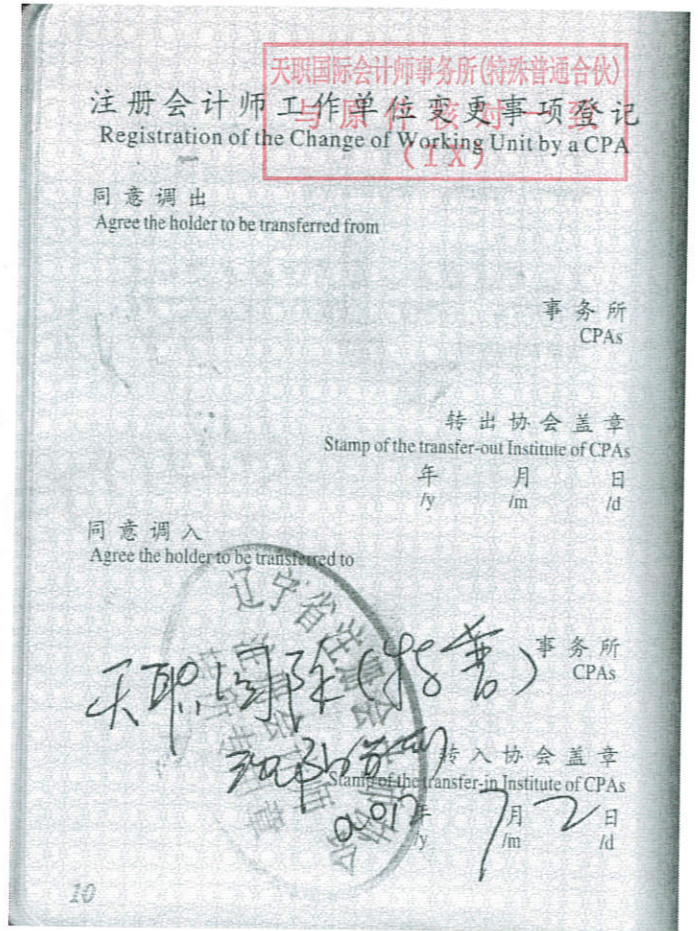 天职国际会计师事务所(特殊普通合伙)
与原件核对一致
(IX)
注册会计师工作单位变更事项登记
Registration of the Change of Working Unit by a CPA
同意调出
Agree the holder to be transferred from
事务所
CPAs
转出协会盖章
Stamp of the transfer-out Institute of CPAs
年 月 日
/y /m /d
同意调入
Agree the holder to be transferred to
辽宁省注册会计师协会
天职国际(特普) 事务所
CPAs
沈阳分所
转入协会盖章
Stamp of the transfer-in Institute of CPAs
2012年 7月 2日
/y /m /d
10